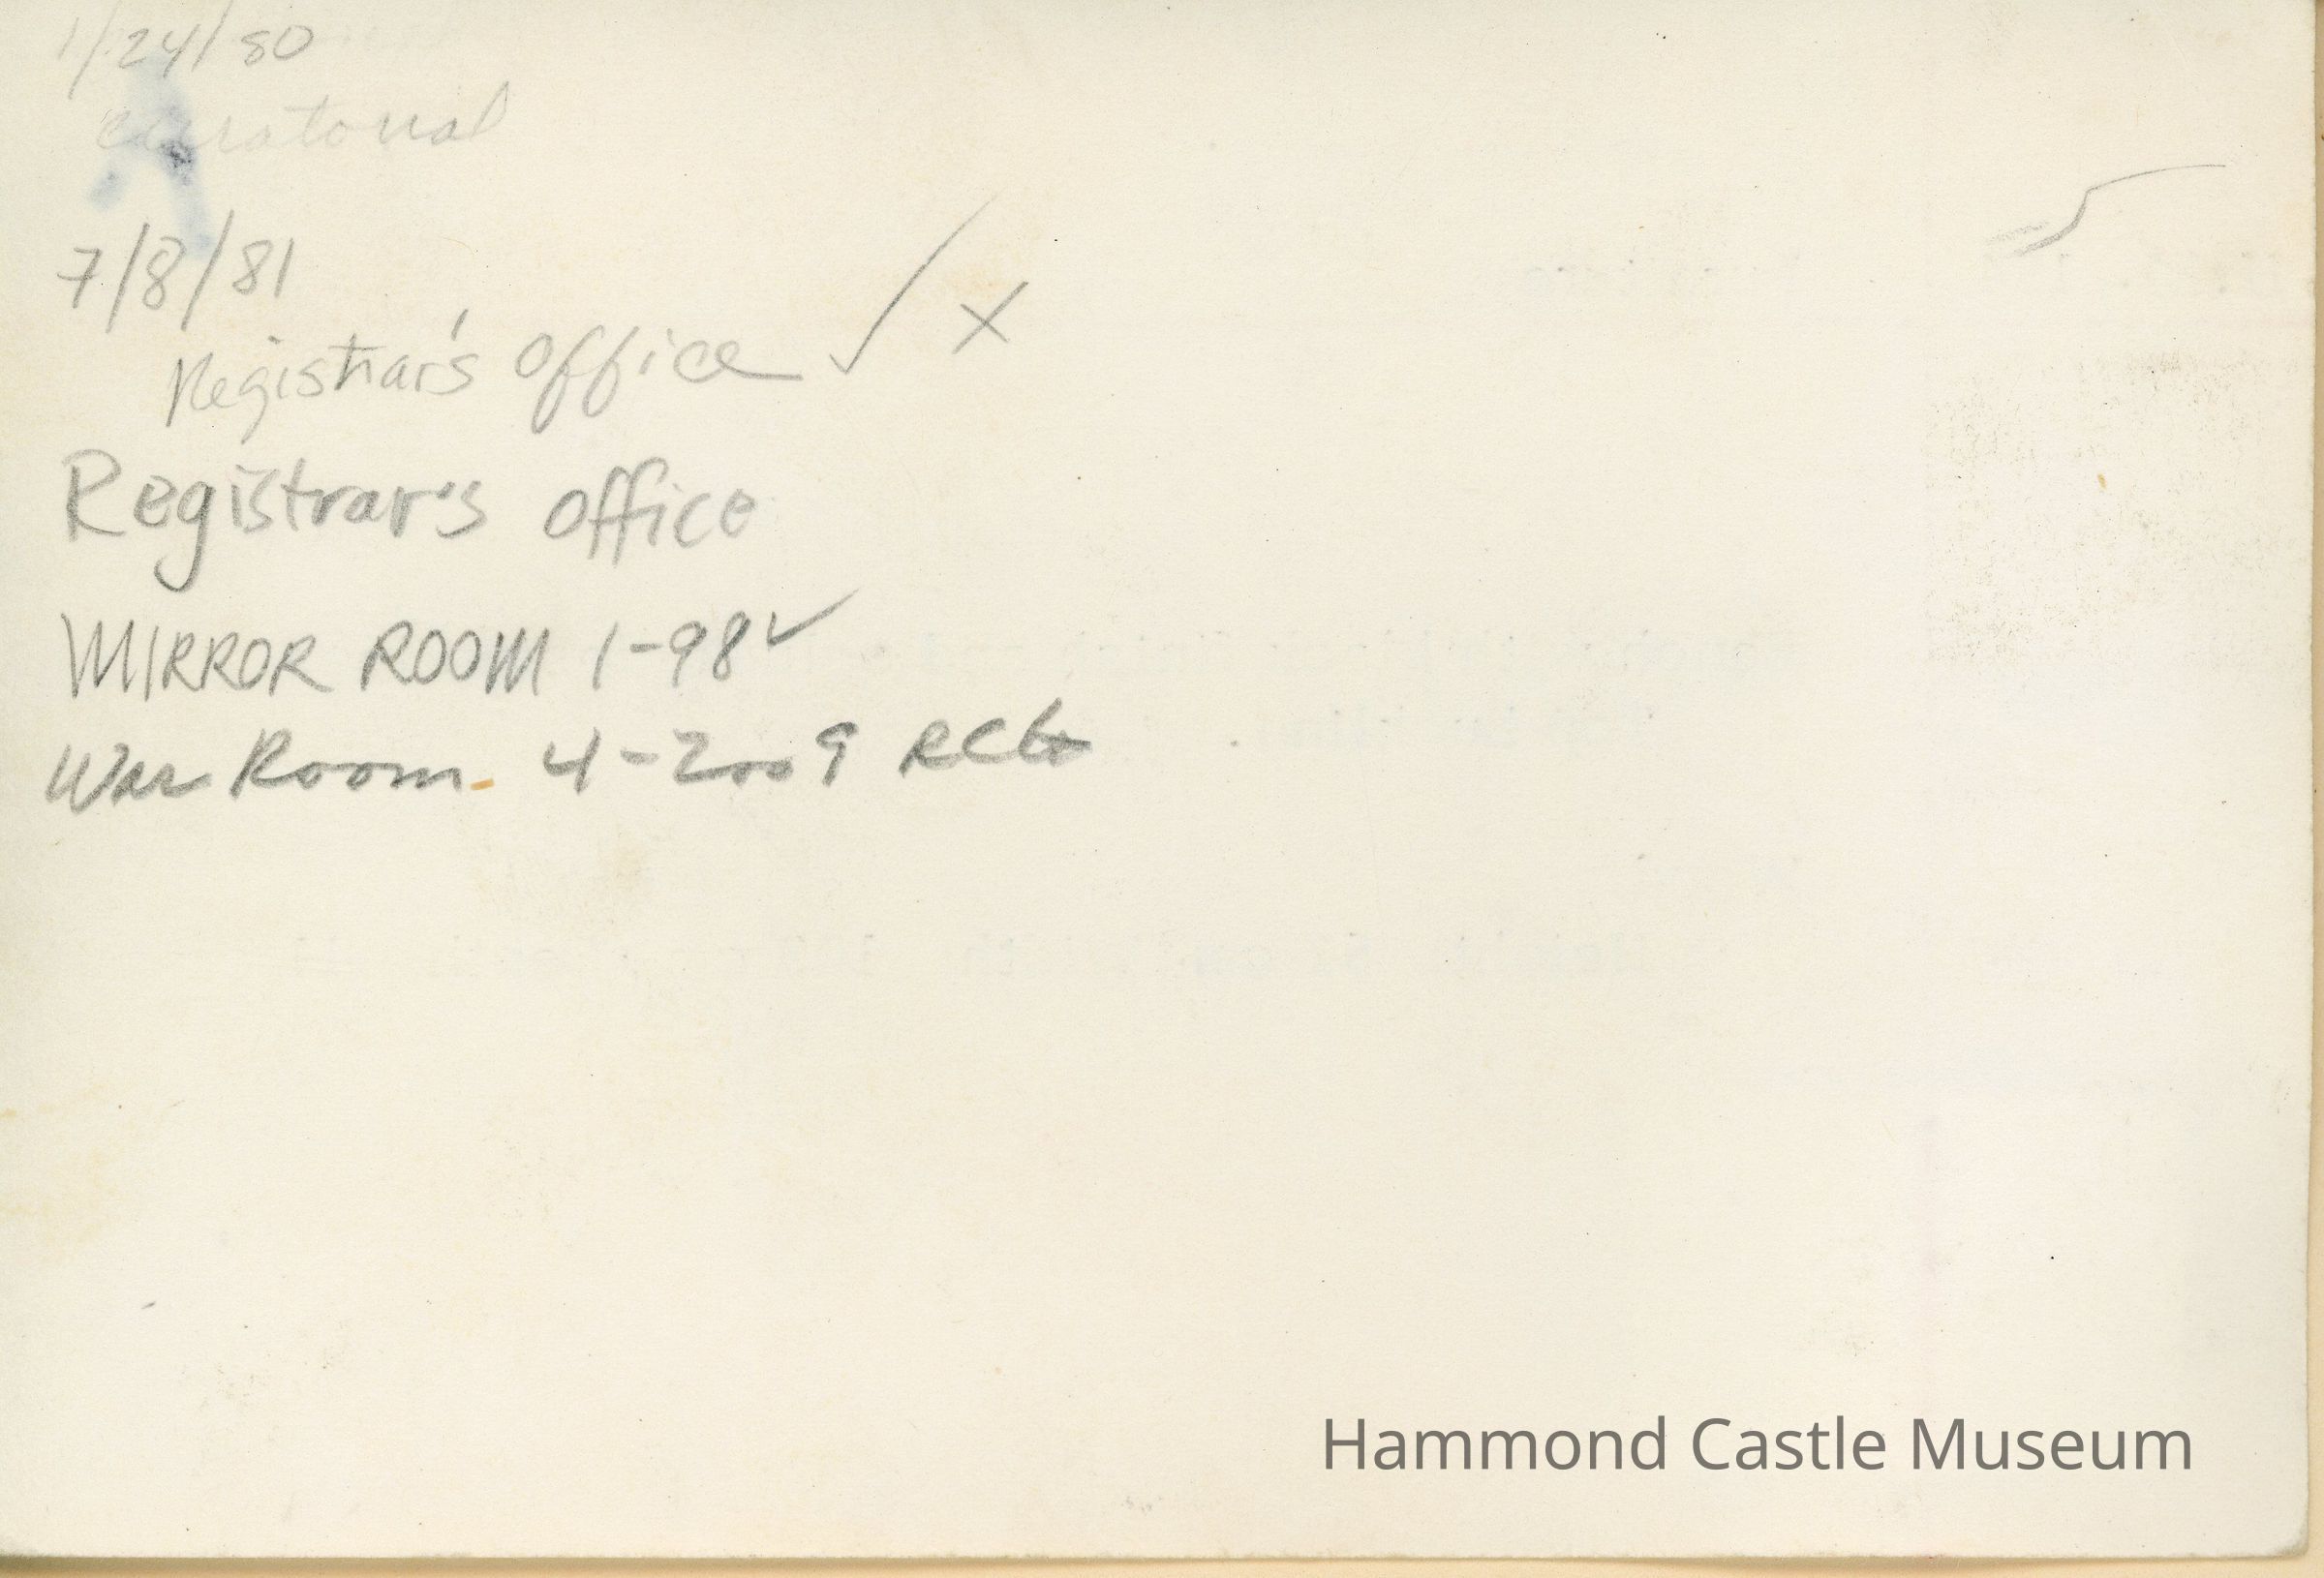 1/24/80
curatorial
7/8/81
Registrar's office ✓ x
Registrar's office
MIRROR ROOM 1-98 ✓
War Room 4-2009
Hammond Castle Museum